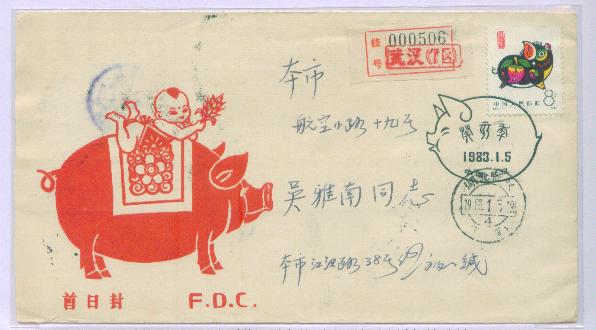 挂号
000506
武汉(7区)
中国人民邮政
8分
本市
航空小路十九号
癸亥年
1983.1.5
吴雅南同志
本市江汉路38号
缄
首日封
F.D.C.